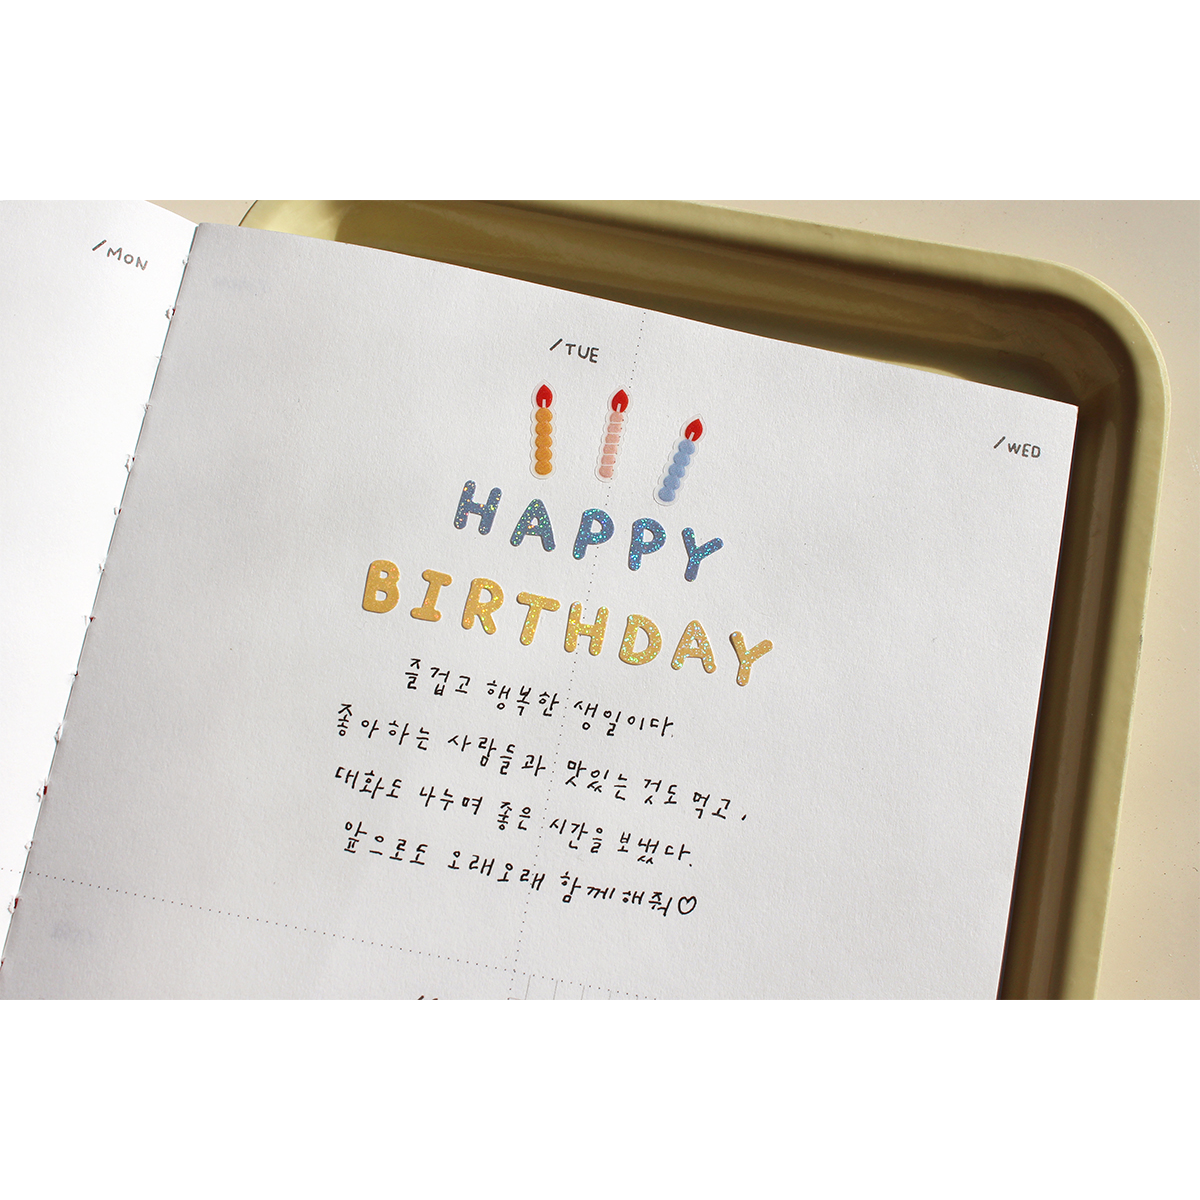 /MON
/TUE
/WED
HAPPY
BIRTHDAY
즐겁고 행복한 생일이다.
좋아하는 사람들과 맛있는 것도 먹고,
대화도 나누며 좋은 시간을 보냈다.
앞으로도 오래오래 함께해줘♡